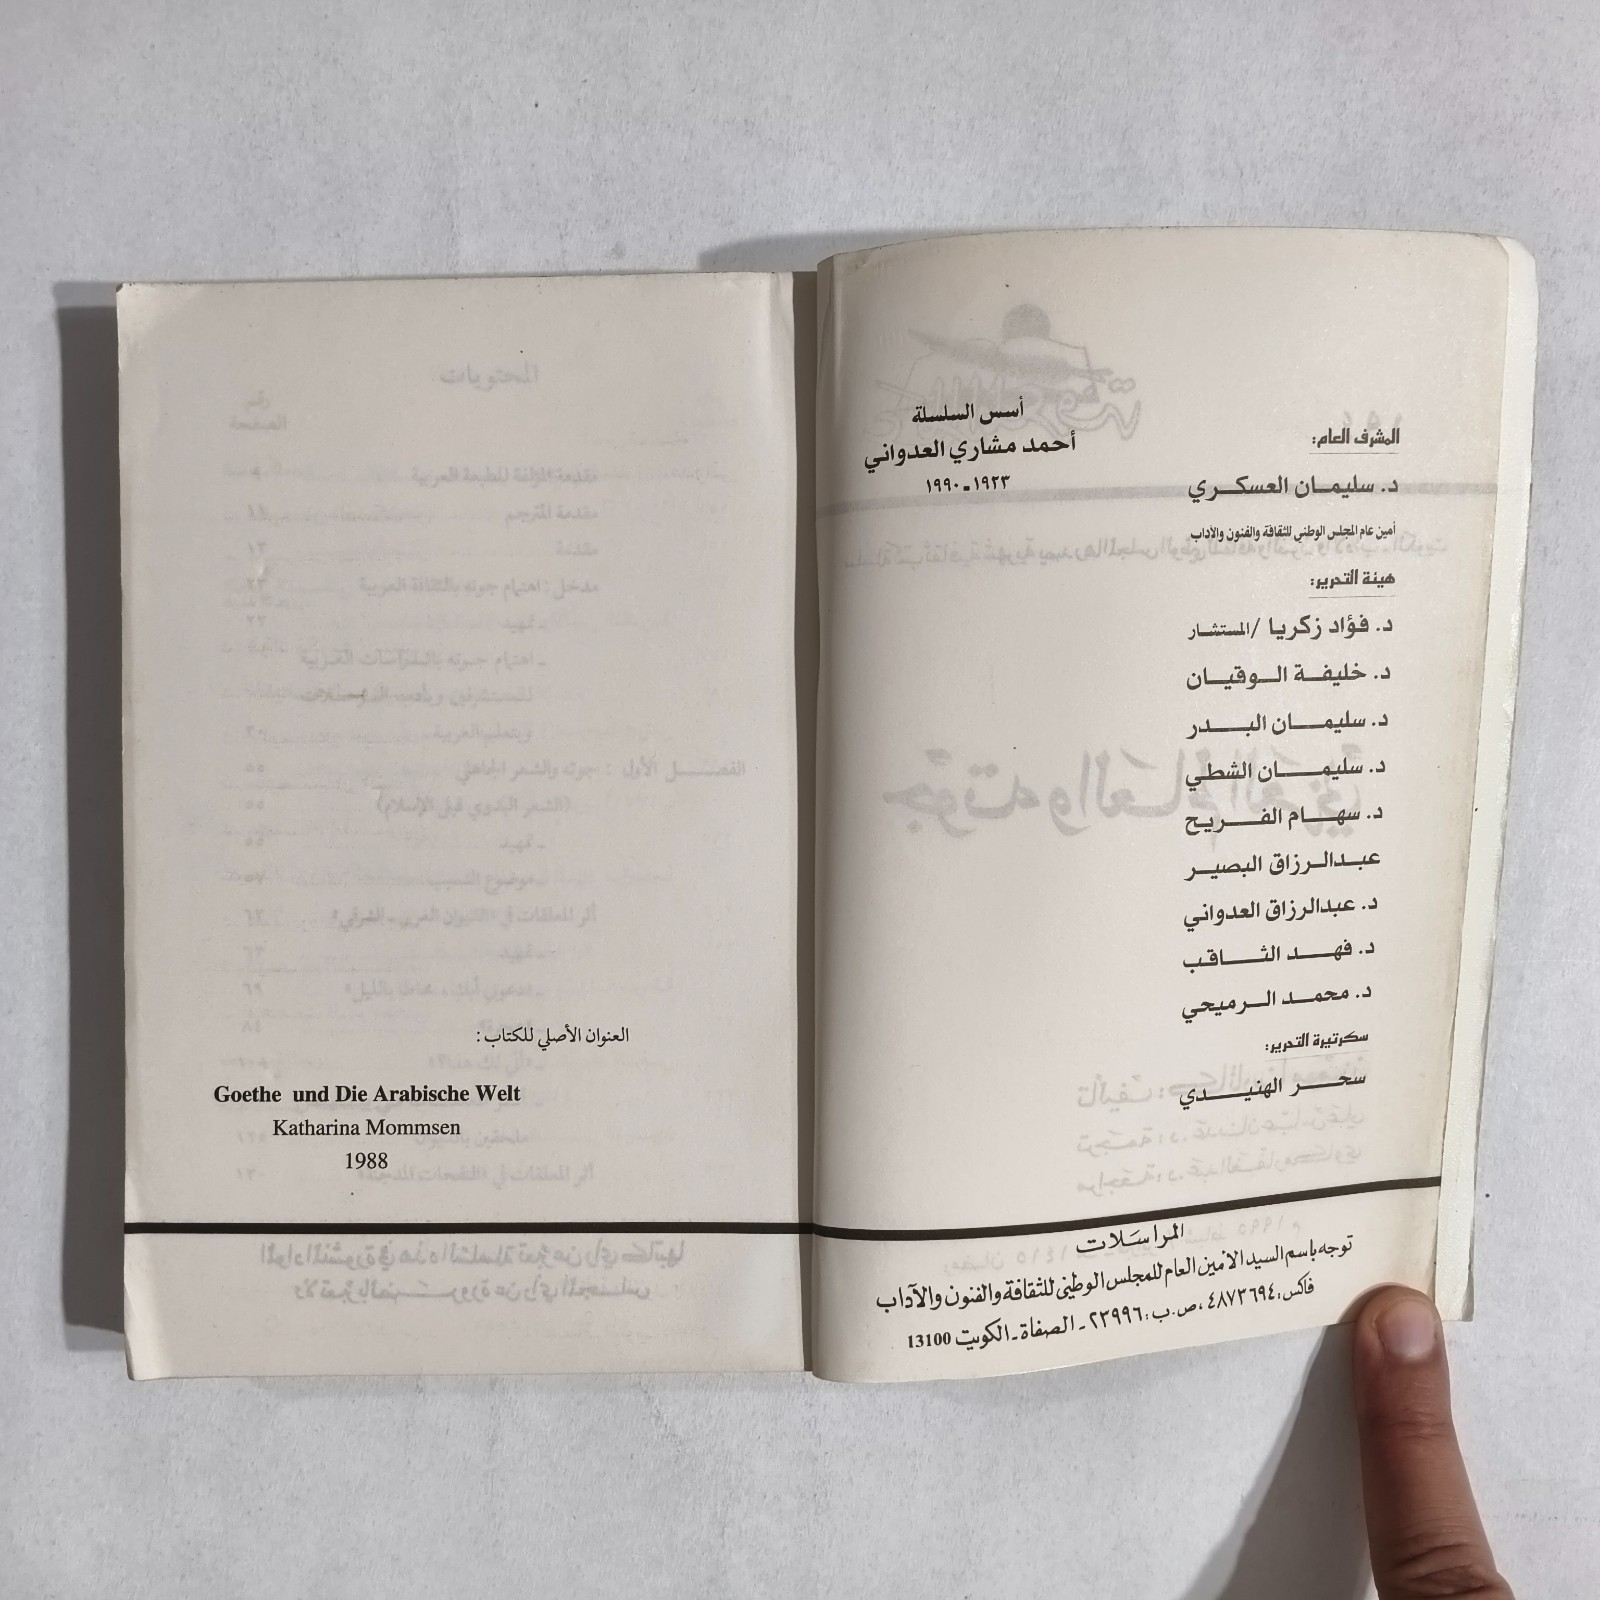 أسس السلسلة
أحمد مشاري العدواني
١٩٢٣ـ١٩٩٠
المشرف العام:
د. سليمان العسكري
أمين عام المجلس الوطني للثقافة والفنون والآداب
هيئة التحرير:
د. فؤاد زكريا /المستشار
د. خليفة الوقيان
د. سليمان البدر
د. سليمان الشطي
د. سهام الفريح
عبدالرزاق البصير
د. عبدالرزاق العدواني
د. فهد الثاقب
د. محمد الرميحي
سكرتيرة التحرير:
سحر الهنيدي
المراسلات
توجه باسم السيد الامين العام للمجلس الوطني للثقافة والفنون والآداب
فاكس: ٤٨٧٣٦٩٤، ص.ب: ٢٣٩٩٦ـ الصفاة ـ الكويت 13100
العنوان الأصلي للكتاب:
Goethe und Die Arabische Welt
Katharina Mommsen
1988